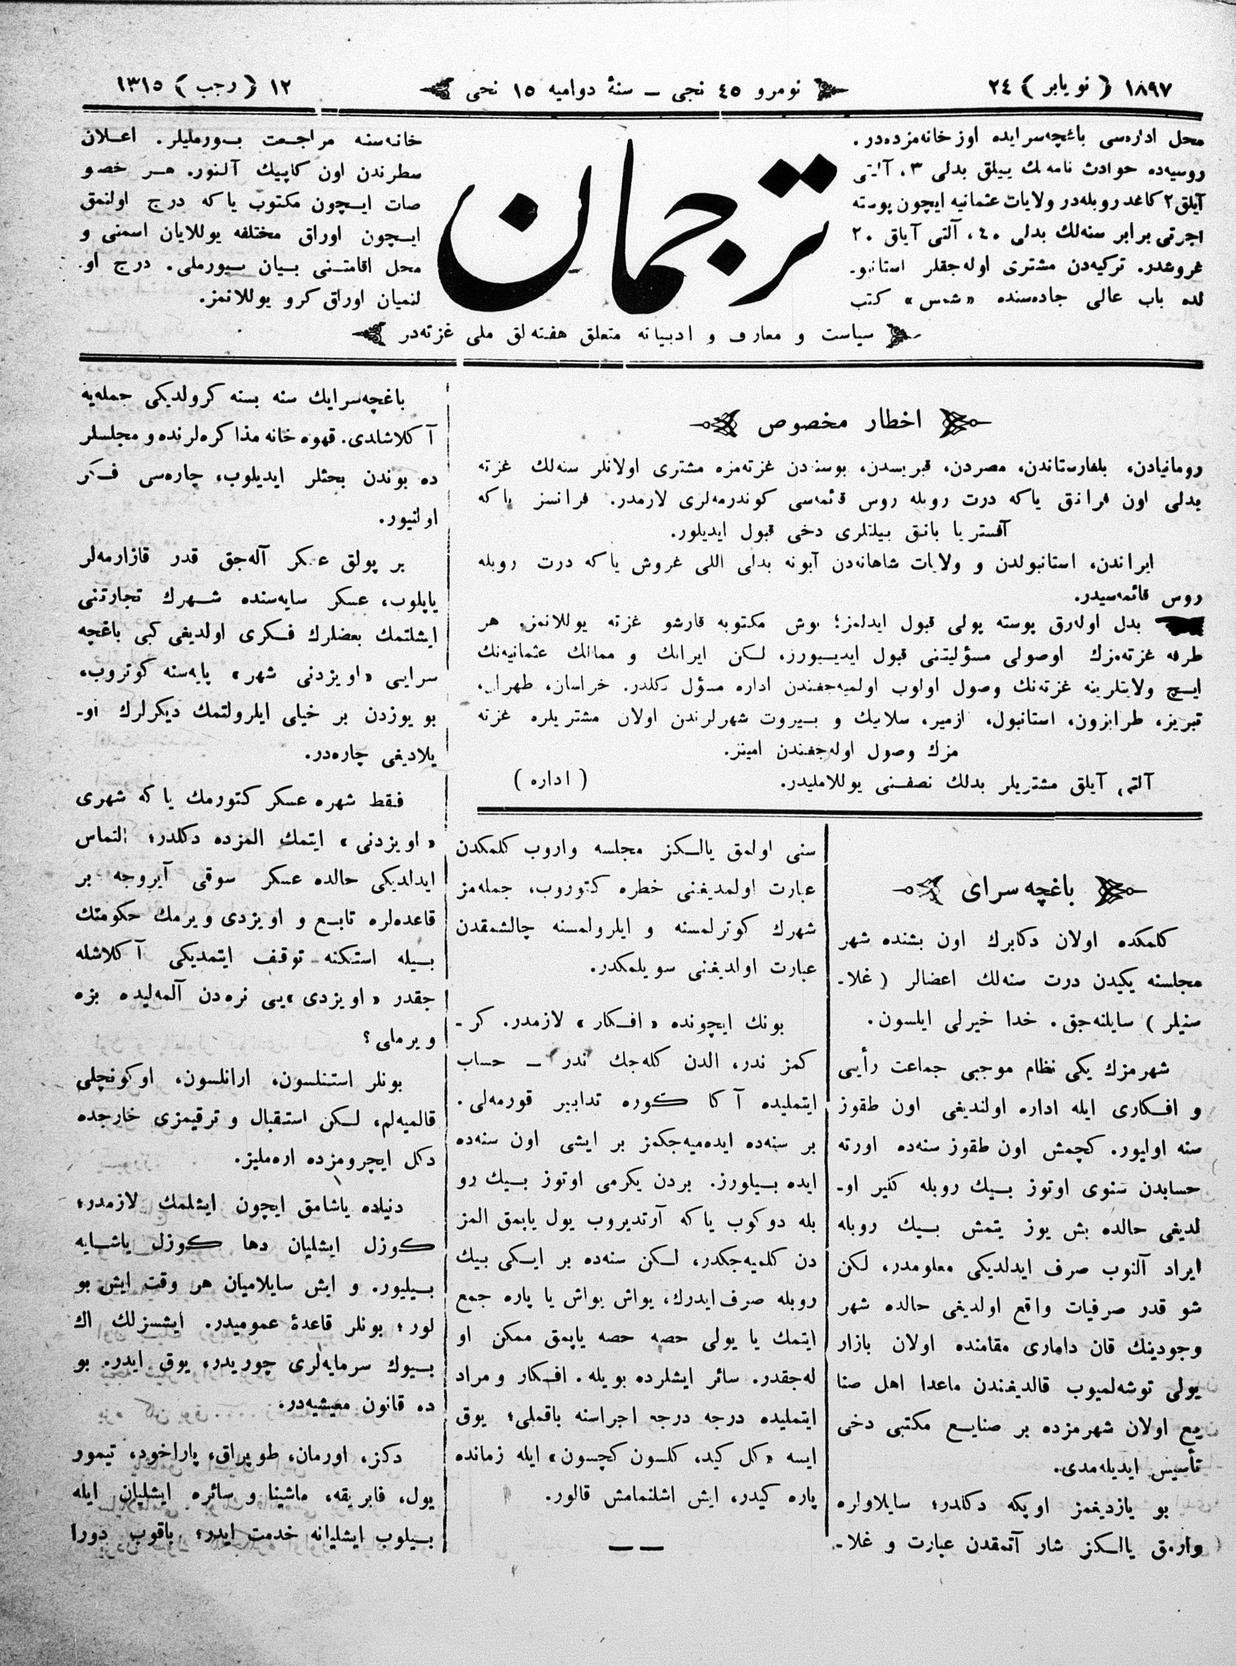 ١٨٩٧ ( نويابر ) ٢٤
نومرو ٤٥ نجى ــ سنۀ دواميه ١٥ نجى
١٢ ( رجب ) ١٣١٥
محل اداره‌سى باغچه‌سرايده اوز خانه‌مزده‌در.
روسيه‌ده حوادث نامه‌نك ييللق بدلى ٣، آلتى
آيلق ٢ كاغد روبله‌در ولايات عثمانيه ايچون پوسته
اجرتى برابر سنه‌لك بدلى ٤٠، آلتى آيلق ٢٠
غروشدر. تركيه‌دن مشترى اوله‌جقلر استانبو۔
لده باب عالى جاده‌سنده «شمس» كتب
ترجمان
خانه‌سنه مراجعت بيورمليلر. اعلان
سطرندن اون كاپيك آلنور. هر خصو
صات ايچون مكتوب ياكه درج اولنمق
ايچون اوراق مختلفه يوللايان اسمنى و
محل اقامتنى بيان بيورملى. درج او۔
لنميان اوراق كرو يوللانمز.
سياست و معارف و ادبياته متعلق هفته‌لق ملى غزته‌در
اخطار مخصوص
رومانيادن، بلغارستاندن، مصردن، قبريسدن، بوسنه‌دن غزته‌مزه مشترى اولانلر سنه‌لك غزته
بدلى اون فرانق ياكه درت روبله روس قائمه‌سى كوندرمه‌لرى لازمدر. فرانسز ياكه
آفستريا بانق بيلتلرى دخى قبول ايديلور.
ايراندن، استانبولدن و ولايات شاهانه‌دن آبونه بدلى اللى غروش ياكه درت روبله
روس قائمه‌سيدر.
بدل اوله‌رق پوسته پولى قبول ايدلمز؛ بوش مكتوبه قارشو غزته يوللانمز. هر
طرفه غزته‌مزك اوصولى مسؤليتنى قبول ايديبورز، لكن ايرانك و ممالك عثمانيه‌نك
ايچ ولايتلرينه غزته‌نك وصول اولوب اولميه‌جغندن اداره مسؤل دكلدر. خراسان، طهران،
تبريز، طرابزون، استانبول، ازمير، سلانيك و بيروت شهرلرندن اولان مشتريلره غزته
مزك وصول اوله‌جغندن امينز.
آلتى آيلق مشتريلر بدلك نصفنى يوللامليدر.
( اداره )
باغچه سراى
كلمكده اولان دكابرك اون بشنده شهر
مجلسنه يكيدن درت سنه‌لك اعضالر ( غلا۔
سنيلر ) سايلنه‌جق. خدا خيرلى ايلسون.
شهرمزك يكى نظام موجبى جماعت رأيى
و افكارى ايله اداره اولنديغى اون طقوز
سنه اوليور. كچمش اون طقوز سنه‌ده اورته
حسابدن سنوى اوتوز بيك روبله كثير او۔
لديغى حالده بش يوز يتمش بيك روبله
ايراد آلنوب صرف ايدلديكى معلومدر، لكن
شو قدر صرفيات واقع اولديغى حالده شهر
وجودينك قان دامارى مقامنده اولان بازار
يولى توشه‌لميوب قالديغندن ماعدا اهل صنا
يع اولان شهرمزده بر صنايع مكتبى دخى
تأسيس ايديله‌مدى.
بو يازديغمز اوپكه دكلدر؛ سايلاولره
وارمق يالكز شار آتمقدن عبارت و غلا۔
سنى اولمق يالكز مجلسه واروب كلمكدن
عبارت اولمديغنى خطره كتوروب، جمله‌مز
شهرك كوترلمسنه و ايلرولمسنه چالشمقدن
عبارت اولديغنى سويلمكدر.
بونك ايچونده «افكار» لازمدر. كر۔
كمز ندر، الدن كله‌جك ندر ــ حساب
ايتمليده آكا كوره تدابير قورمه‌لى.
بر سنه‌ده ايده‌ميه‌جكمز بر ايشى اون سنه‌ده
ايده بيلورز. بردن يكرمى اوتوز بيك رو
بله دوكوب ياكه آرتديروب يول ياپمق المز
دن كلميه‌جكدر، لكن سنه‌ده بر ايكى بيك
روبله صرف ايدرك، يواش يواش يا پاره جمع
ايتمك يا يولى حصه حصه ياپمق ممكن او
له‌جقدر. سائر ايشلرده بويله. افكار و مراد
ايتمليده درجه درجه اجراسنه باقملى؛ يوق
ايسه «كل كيد، كلسون كچسون» ايله زمانده
پاره كيدر، ايش اشلنمامش قالور.
باغچه‌سرايك سنه بسنه كرولديكى جمله‌يه
آكلاشلدى. قهوه خانه مذاكره‌لرنده و مجلسلر
ده بوندن بحثلر ايديلوب، چاره‌سى فكر
اولنيور.
بر پولق عسكر آله‌جق قدر قازارمه‌لر
ياپلوب، عسكر سايه‌سنده شهرك تجارتنى
ايشلتمك بعضلرك فكرى اولديغى كبى باغچه
سرايى «اويزدنى شهر» پايه‌سنه كوتروب،
بو يوزدن بر خيلى ايلرولتمك ديكرلرك او۔
يلاديغى چاره‌در.
فقط شهره عسكر كتورمك ياكه شهرى
«اويزدنى» ايتمك المزده دكلدر؛ التماس
ايدلديكى حالده عسكر سوقى آيروجه بر
قاعده‌لره تابع و اويزدى ويرمك حكومتك
بيله استكنه توقف ايتمديكى آكلاشله
جقدر «اويزدى»يى نره‌دن آلمه‌ليده بزه
ويرملى؟
بونلر استنلسون، ارانلسون، اوكونچلى
قالميه‌لم، لكن استقبال و ترقيمزى خارجده
دكل ايچرومزده اره‌مليز.
دنياده ياشامق ايچون ايشلمك لازمدر؛
كوزل ايشليان دها كوزل ياشايه
بيليور. و ايش سايلاميان هر وقت ايش بو
لور؛ بونلر قاعدۀ عموميدر. ايشسزلك اك
بيوك سرمايه‌لرى چوريدر، يوق ايدر. بو
ده قانون معيشيه‌در.
دكز، اورمان، طوپراق، پاراخود، تيمور
يول، فابريقه، ماشينا و سائره ايشليان ايله
بيلوب ايشليانه خدمت ايدر؛ ياقوب دورا